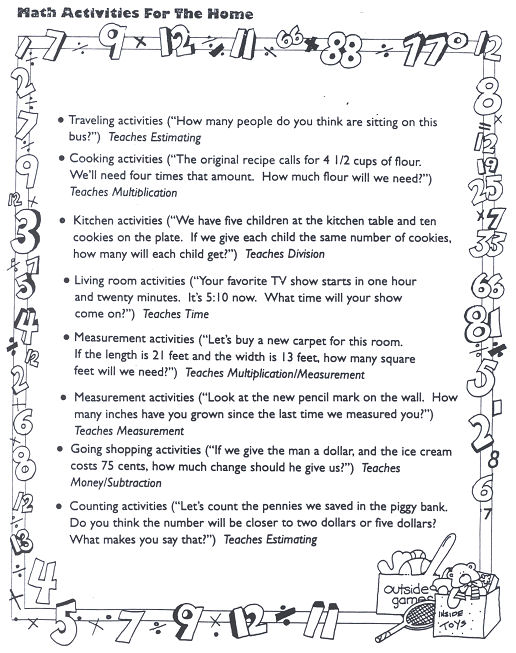 Math Activities For The Home
1 7 ÷ 9 × 12 ÷ 11 × 66 × 88 ÷ 77° 12
• Traveling activities ("How many people do you think are sitting on this
bus?") Teaches Estimating
• Cooking activities ("The original recipe calls for 4 1/2 cups of flour.
We'll need four times that amount. How much flour will we need?")
Teaches Multiplication
• Kitchen activities ("We have five children at the kitchen table and ten
cookies on the plate. If we give each child the same number of cookies,
how many will each child get?") Teaches Division
• Living room activities ("Your favorite TV show starts in one hour
and twenty minutes. It's 5:10 now. What time will your show
come on?") Teaches Time
• Measurement activities ("Let's buy a new carpet for this room.
If the length is 21 feet and the width is 13 feet, how many square
feet will we need?") Teaches Multiplication/Measurement
• Measurement activities ("Look at the new pencil mark on the wall. How
many inches have you grown since the last time we measured you?")
Teaches Measurement
• Going shopping activities ("If we give the man a dollar, and the ice cream
costs 75 cents, how much change should he give us?") Teaches
Money/Subtraction
• Counting activities ("Let's count the pennies we saved in the piggy bank.
Do you think the number will be closer to two dollars or five dollars?
What makes you say that?") Teaches Estimating
2
7
9
12
3
5
4
12
2
6
8
12
13
4
8
12
19
25
×7
33
66
81
5
2
8
6
7
outside
games
INSIDE
TOYS
5 × 7 ÷ 9 × 12 ÷ 11